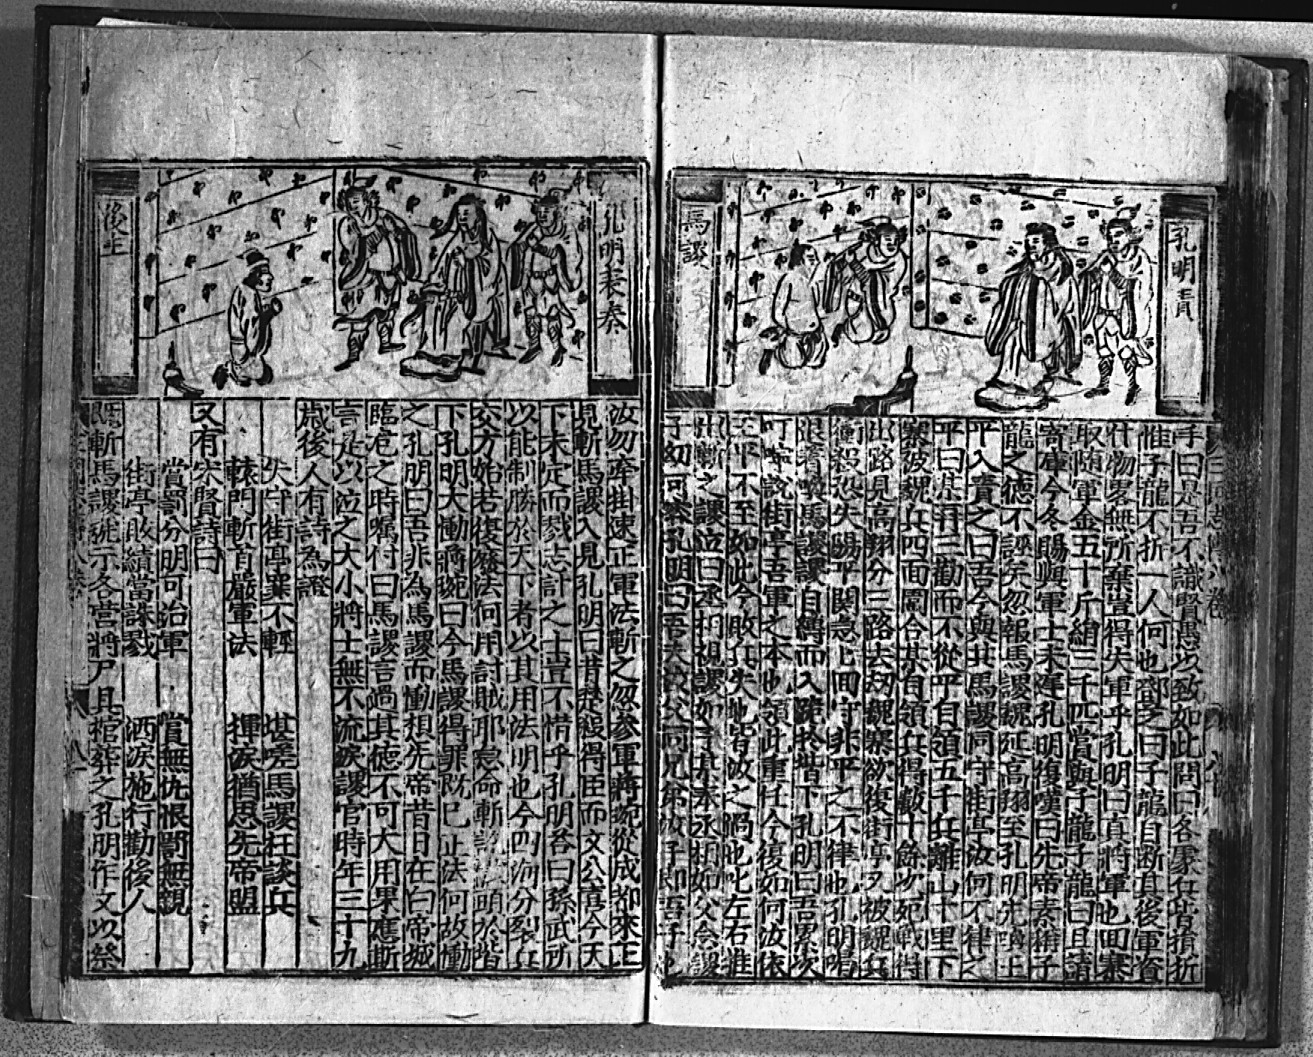 孔明責
馬謖
手曰是吾不識賢愚以致如此問曰各處兵皆損折
惟子龍不折一人何也鄧芝曰子龍自断其後軍資
什物畧無所棄豈得失軍乎孔明曰真將軍也回寨
取随軍金五十斤絹三千匹賞與子龍子龍曰且請
寄庫今冬賜與軍士未遲孔明復嘆曰先帝素稱子
龍之德不誣矣忽報馬謖魏延高翔至孔明先喚王
平入責之曰吾令與共馬謖同守街亭汝何不律之
平曰某再三勸而不從平自領五千兵離山十里下
寨被魏兵四面圍合某自領兵得數十餘次死戰得
出路見高翔分三路去刼魏寨欲復街亭又被魏兵
衝殺恐失陽平関急上回守非平之不律也孔明喝
退着喚馬謖謖自縛而入跪於堦下孔明曰吾累次
叮嚀說街亭吾軍之本也領此重任今復如何汝依
王平不至如此今敗兵失地皆汝之過也叱左右推
出斬之謖泣曰丞相視謖如子某奉丞相如父
孔明曰吾
孔明表奏
後主
汝勿牽掛速正軍法斬之忽參軍蔣琬從成都來正
見斬馬謖入見孔明曰昔楚殺得臣而文公喜今天
下未定而戮志計之士豈不惜乎孔明答曰孫武所
以能制勝於天下者以其用法明也今四海分裂兵
交方始若復廢法何用討賊耶急命斬
下孔明大慟蔣琬曰今馬謖得罪既已正法何故慟
之孔明曰吾非為馬謖而慟想先帝昔日在白帝城
臨危之時囑付曰馬謖言過其德不可大用果應斯
言是以泣之大小將士無不流淚謖官時年三十九
歲後人有詩為證
失守街亭罪不輕　堪嗟馬謖枉談兵
轅門斬首嚴軍法　揮淚猶思先帝盟
又有宋賢詩曰
賞罰分明可治軍　賞無仇恨罰無親
街亭敗績當誅戮　洒淚施行勸後人
既斬馬謖號示各营將尸具棺葬之孔明作文以祭